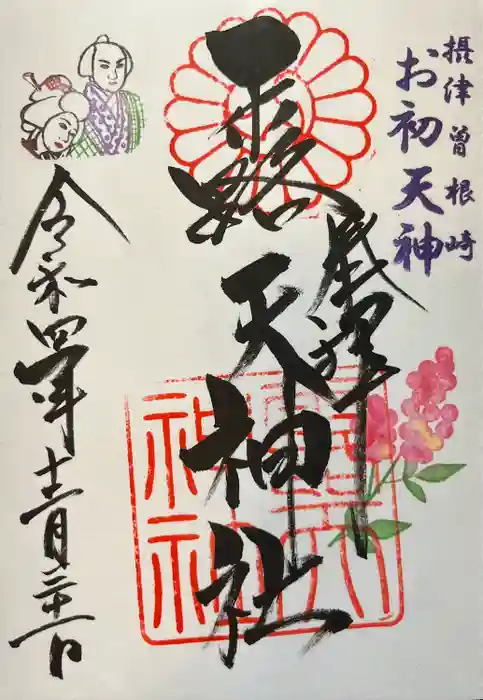 摂津曽根崎
お初天神
奉拝
露天神社
露天
神社
令和四年十二月三十一日